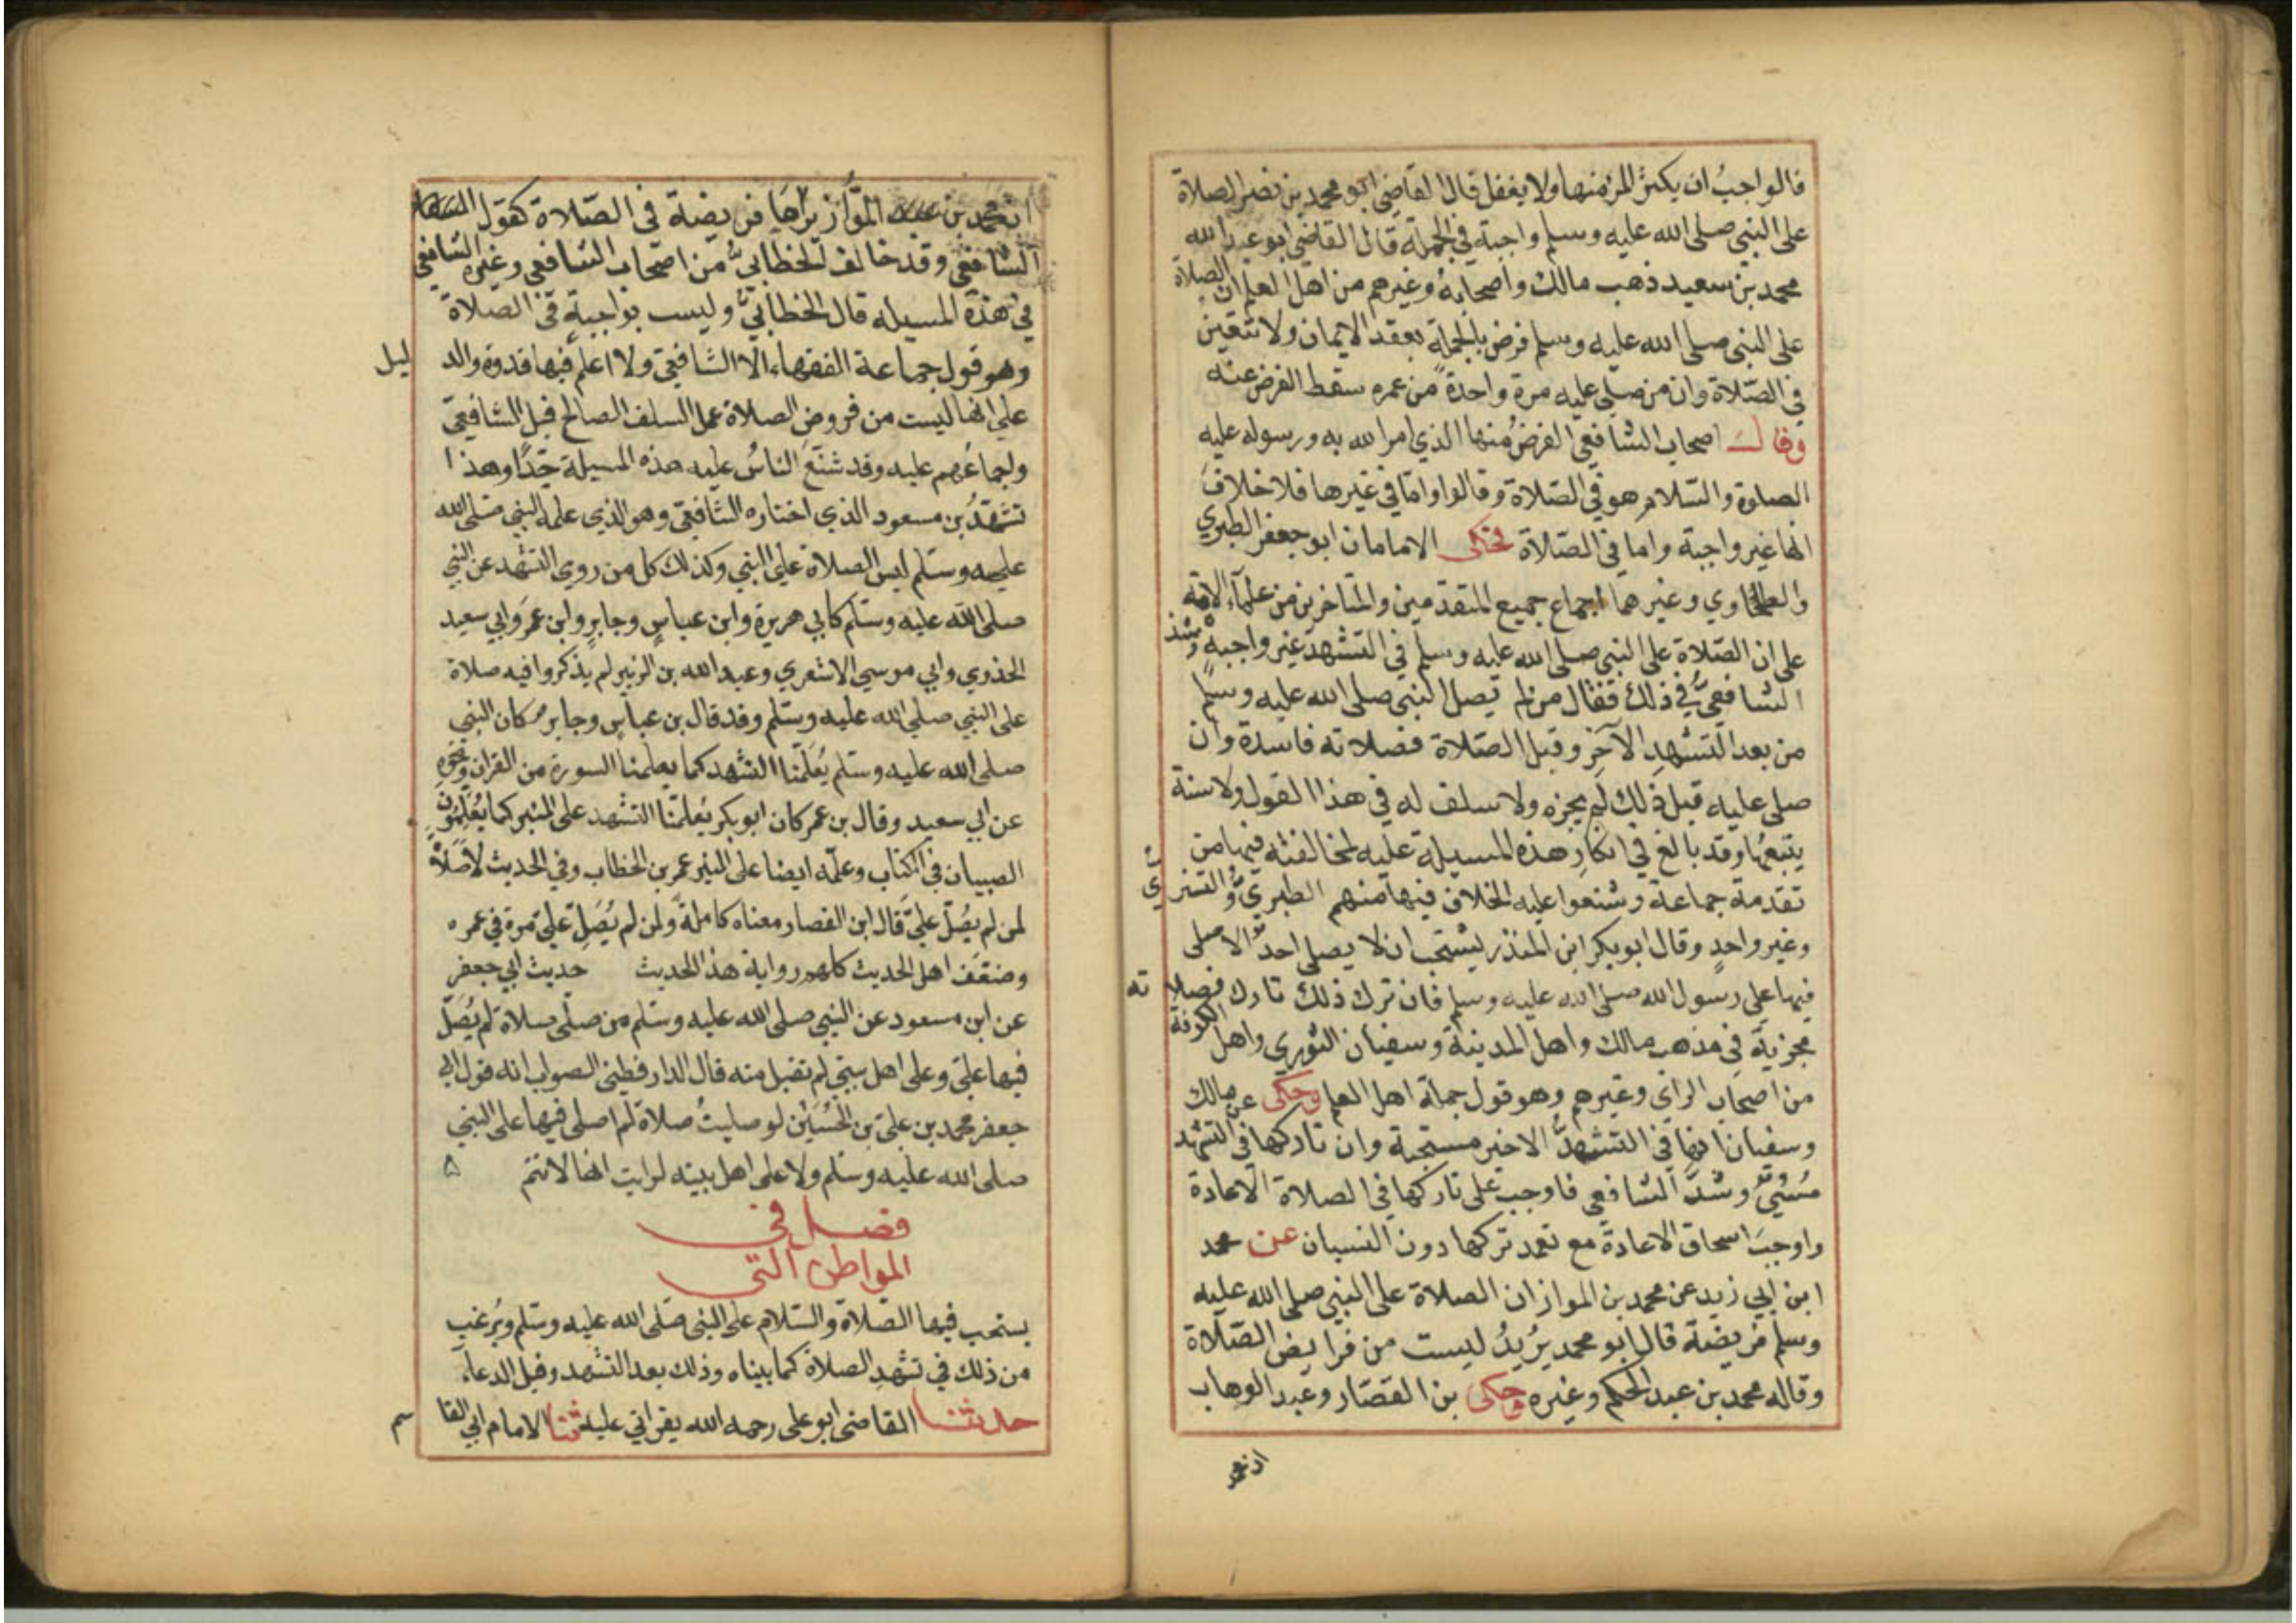 فالواجبُ ان يكثر المرء منها ولا يغفل قال القاضي ابو محمد بن نصر الصلاة
على النبي صلى الله عليه وسلم واجبة في الجملة قال القاضي ابو عبد الله
محمد بن سعيد ذهب مالك واصحابه وغيرهم من اهل العلم ان الصلاة
على النبي صلى الله عليه وسلم فرض بالجملة بعقد الايمان ولا تتعين
في الصلاة وان من صلى عليه مرة واحدة من عمره سقط الفرض عنه
وقال اصحاب الشافعي الفرض منها الذي امر الله به ورسوله عليه
الصلوة والسلام هو في الصلاة وقالوا واما في غيرها فلا خلاف
انها غير واجبة واما في الصلاة فحكى الامامان ابو جعفر الطبري
والطحاوي وغيرهما اجماع جميع المتقدمين والمتاخرين من علماء الامة
على ان الصلاة على النبي صلى الله عليه وسلم في التشهد غير واجبة وشذ
الشافعيُّ في ذلك فقال من لم يصل النبي صلى الله عليه وسلم
من بعد التشهدِ الآخِرِ وقبل الصلاة فصلاته فاسدة وان
صلى عليه قبل ذلك لم يجزه ولا سلف له في هذا القول ولا سنة
يتبعها وقد بالغ في انكارِ هذه المسيلة عليه لمخالفته فيها من
تقدمة جماعة وشنعوا عليه الخلاف فيها منهم الطبريُّ والقشيري
وغير واحدٍ وقال ابو بكر ابن المنذر يستحب ان لا يصلي احدٌ الا صلى
فيها على رسول الله صلى الله عليه وسلم فان ترك ذلك تارك فصلاته
مجزية في مذهب مالك واهل المدينة وسفيان الثوري واهل الكوفة
من اصحاب الراي وغيرهم وهو قول جملة اهل العلم وحكى عن مالك
وسفيان انها في التشهد الاخير مستحبة وان تاركها في التشهد
مُسيٌّ وشذَّ الشافعي فاوجب على تاركها في الصلاة الاعادة
واوجبَ اسحاق الاعادة مع تعمد تركها دون النسيان عن محمد
ابن ابي زيد عن محمد بن المواز ان الصلاة على النبي صلى الله عليه
وسلم فريضة قال ابو محمد يُريدُ ليست من فرايض الصلاة
وقاله محمد بن عبد الحكم وغيره وحكى بن القصّار وعبد الوهاب
ان محمد
ان محمد بن المواز يراها فريضة في الصلاة كقول
الشافعي وقد خالف الخطابيُّ من اصحاب الشافعي وغيره الشافعي
في هذه المسيله قال الخطابيُّ وليست بواجبةٍ في الصلاة
وهو قول جماعة الفقهاء الا الشافعي ولا اعلم فيها قدوة والدليل
على انها ليست من فروض الصلاة عمل السلف الصالح قبل الشافعيّ
واجماعُهم عليه وقد شنّع الناسُ عليه هذه المسيلة جدًّا وهذا
تشهّدُ بن مسعود الذي اختاره الشافعي وهو الذي علمه النبي صلى الله
عليه وسلم ليس الصلاة على النبي وكذلك كل من روى التشهد عن النبي
صلى الله عليه وسلم كابي هريرة وابن عباسٍ وجابرٍ وابن عمرَ وابي سعيد
الخذوي وابي موسي الاشعري وعبد الله بن الزبير لم يذكروا فيه صلاة
على النبي صلى الله عليه وسلم وقد قال بن عباس وجابر كان النبي
صلى الله عليه وسلم يُعَلّمنا التشهد كما يعلمنا السورة من القران ونحوه
عن ابي سعيد وقال بن عمر كان ابو بكر يُعلّمنا التشهد على المنبر كما يُعَلِّمُونَ
الصبيان في الكتاب وعلّمه ايضا على المنبر عمر بن الخطاب وفي الحديث لا صَلاةَ
لمن لم يُصلّ عليَّ قال ابن القصار معناه كاملةً ولمن لم يُصَلّ عليّ مرة في عمره
وضعّف اهل الحديث كلهم رواية هذا الحديث حديث ابي جعفر
عن ابن مسعود عن النبي صلى الله عليه وسلم من صلّى صلاة لم يُصَلّ
فيها عليّ وعلى اهل بيتي لم تقبل منه قال الدارقطني الصواب انه قول ابي
جعفر محمد بن علي بن الحُسَيْن لو صليتُ صلاة لم اصلي فيها على النبي
صلى الله عليه وسلم ولا على اهل بيته لرايت انها لا تتم ۵
فصل في
المواطن التي
يستحب فيها الصلاة والسلام على النبي صلى الله عليه وسلم ويُرغب
من ذلك في تشهدِ الصلاة كما بيناه وذلك بعد التشهد وقبل الدعاء
حدثنا القاضي ابو علي رحمه الله بقراتي عليه ثنا الامام ابي القاسم